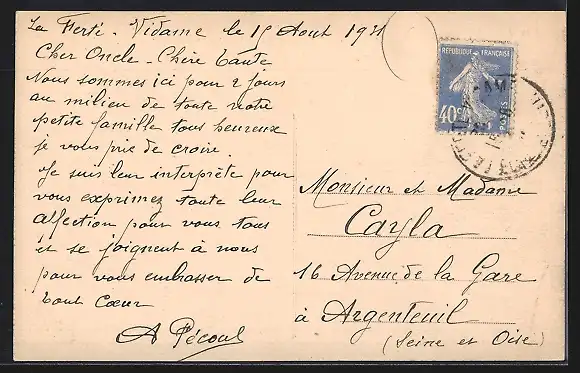 La Ferté-Vidame le 15 Aout 193
Cher Oncle - Chère tante
Nous sommes ici pour 2 jours
au milieu de toute votre
petite famille tous heureux
je vous prie de croire
Je suis leur interprète pour
vous exprimez toute leur
affection pour vous tous
et se joignent à nous
pour vous embrasser de
tout Cœur
A Pécoul
RÉPUBLIQUE FRANÇAISE
40c
POSTES
Monsieur et Madame
Cayla
16 Avenue de la Gare
à Argenteuil
(Seine et Oise)